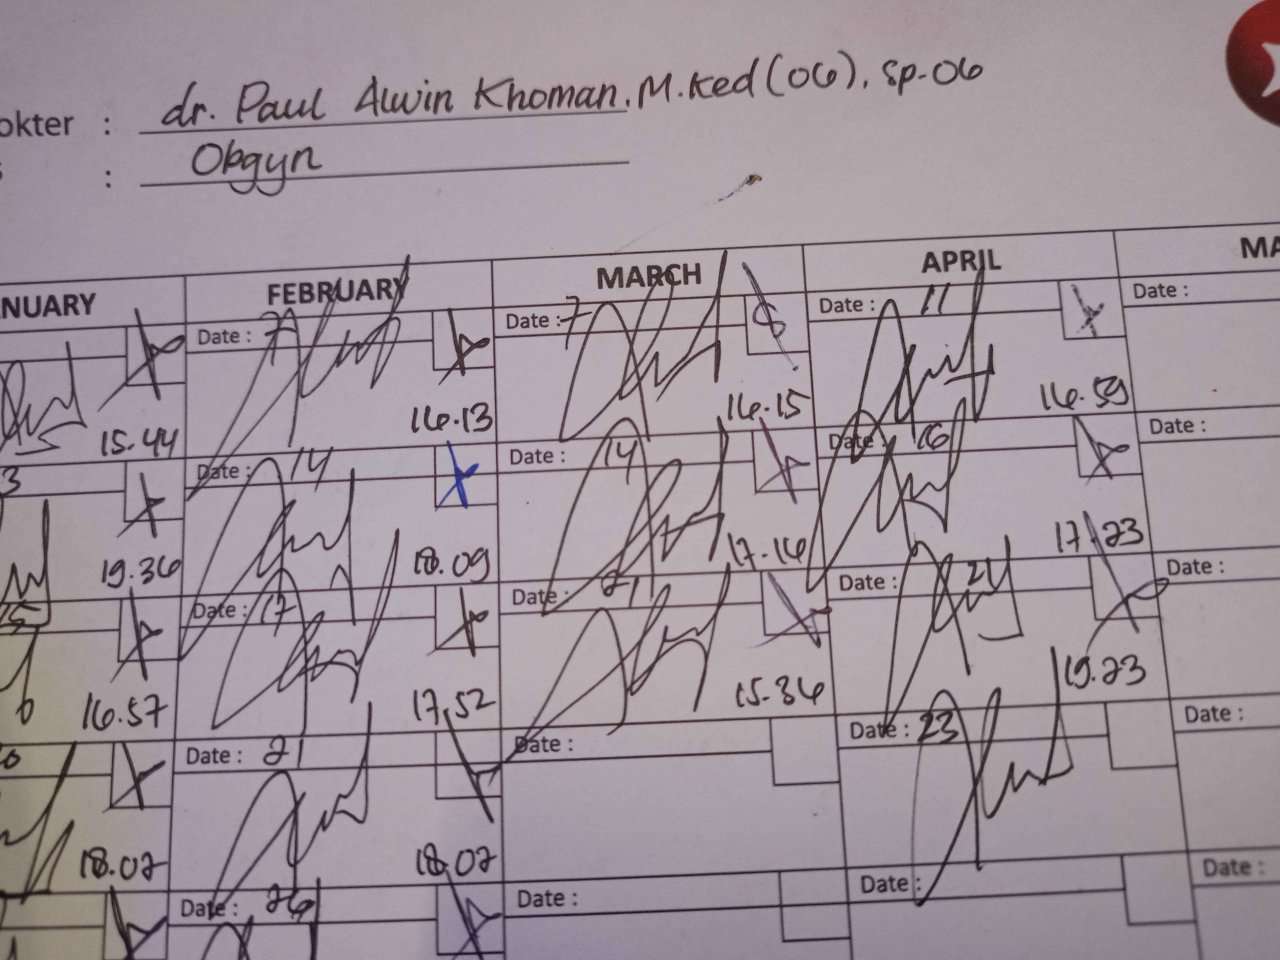 okter : dr. Paul Alwin Khoman. M.Ked (OG). Sp-OG
: Obgyn
NUARY FEBRUARY MARCH APRIL MA
Date : 7 Date : 7 Date : 11 Date :
15.44 16.13 16.15 16.59
3 Date : 14 Date : 14 Date : 16 Date :
19.36 18.09 17.16 17.23
Date : 17 Date : 21 Date : 21 Date :
16.57 17.52 15.36 19.23
Date : 21 Date : Date : 23 Date :
18.07 18.07
Date : 26 Date : Date : Date :